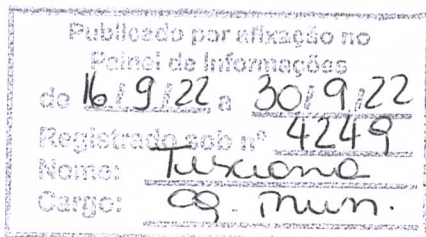 Publicado por afixação no
Painel de Informações
de 16/9/22 a 30/9/22
Registrado sob nº 4249
Nome:
Cargo: ag. mun.